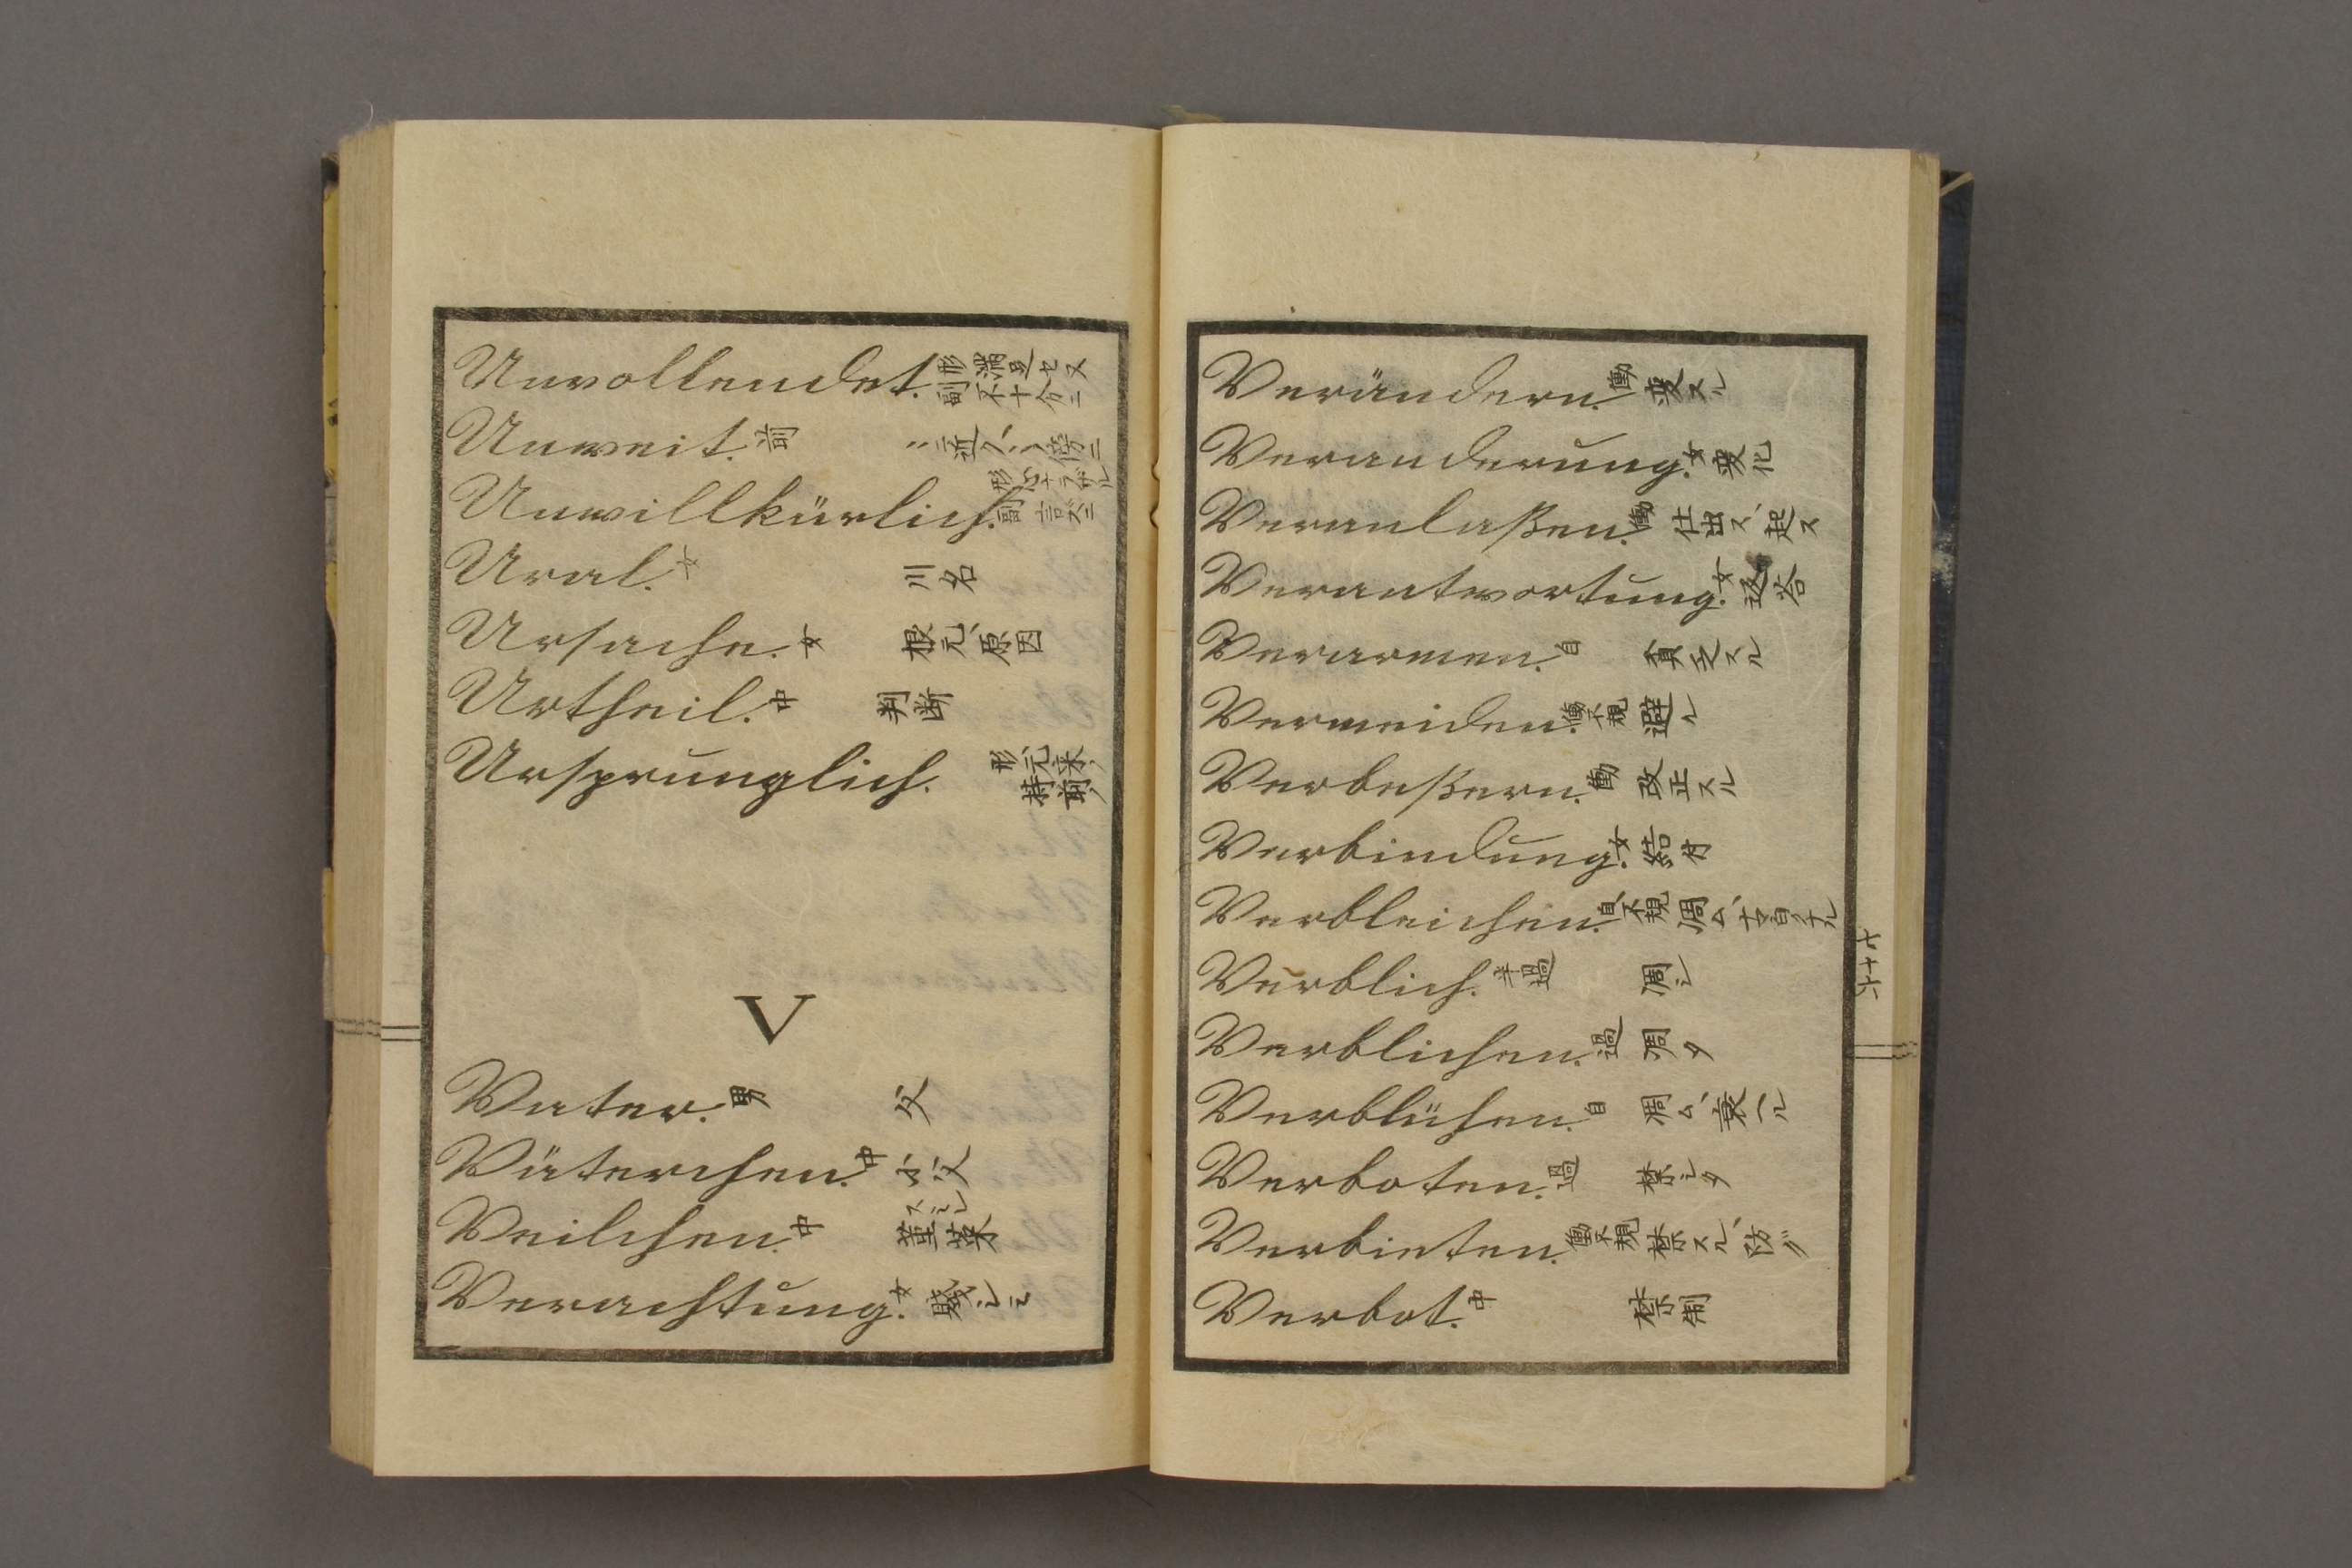 Unvollendet. 形 満足セヌ 副 不十分ニ
Unweit. 前 …ニ近ク、…ノ傍ニ
Unwillkürlich. 形 心ナラザル 副 言ズニ
Ural. 女 川名
Ursache. 女 根元、原因
Urtheil. 中 判断
Ursprunglich. 形 元来ノ、持前ノ
V
Vater. 男 父
Väterchen. 中 小父
Veilchen. 中 菫菜 スミレ
Verachtung. 女 賤シミ
Verändern. 働 変スル
Veranderung. 女 変化
Veranlaßen. 働 仕出ス、起ス
Verantwortung. 女 返答
Verarmen. 自 貧乏スル
Vermeiden. 働不規 避ル
Verbeßern. 働 改正スル
Verbindung. 女 結付
Verbleichen. 自不規 凋ム、古白クナル
Verblich. 半過 凋シ
Verblichen. 過 凋タ
Verblühen. 自 凋ム、衰ヘル
Verboten. 過 禁シタ
Verbieten. 働不規 禁スル、防グ
Verbot. 中 禁制
六十七